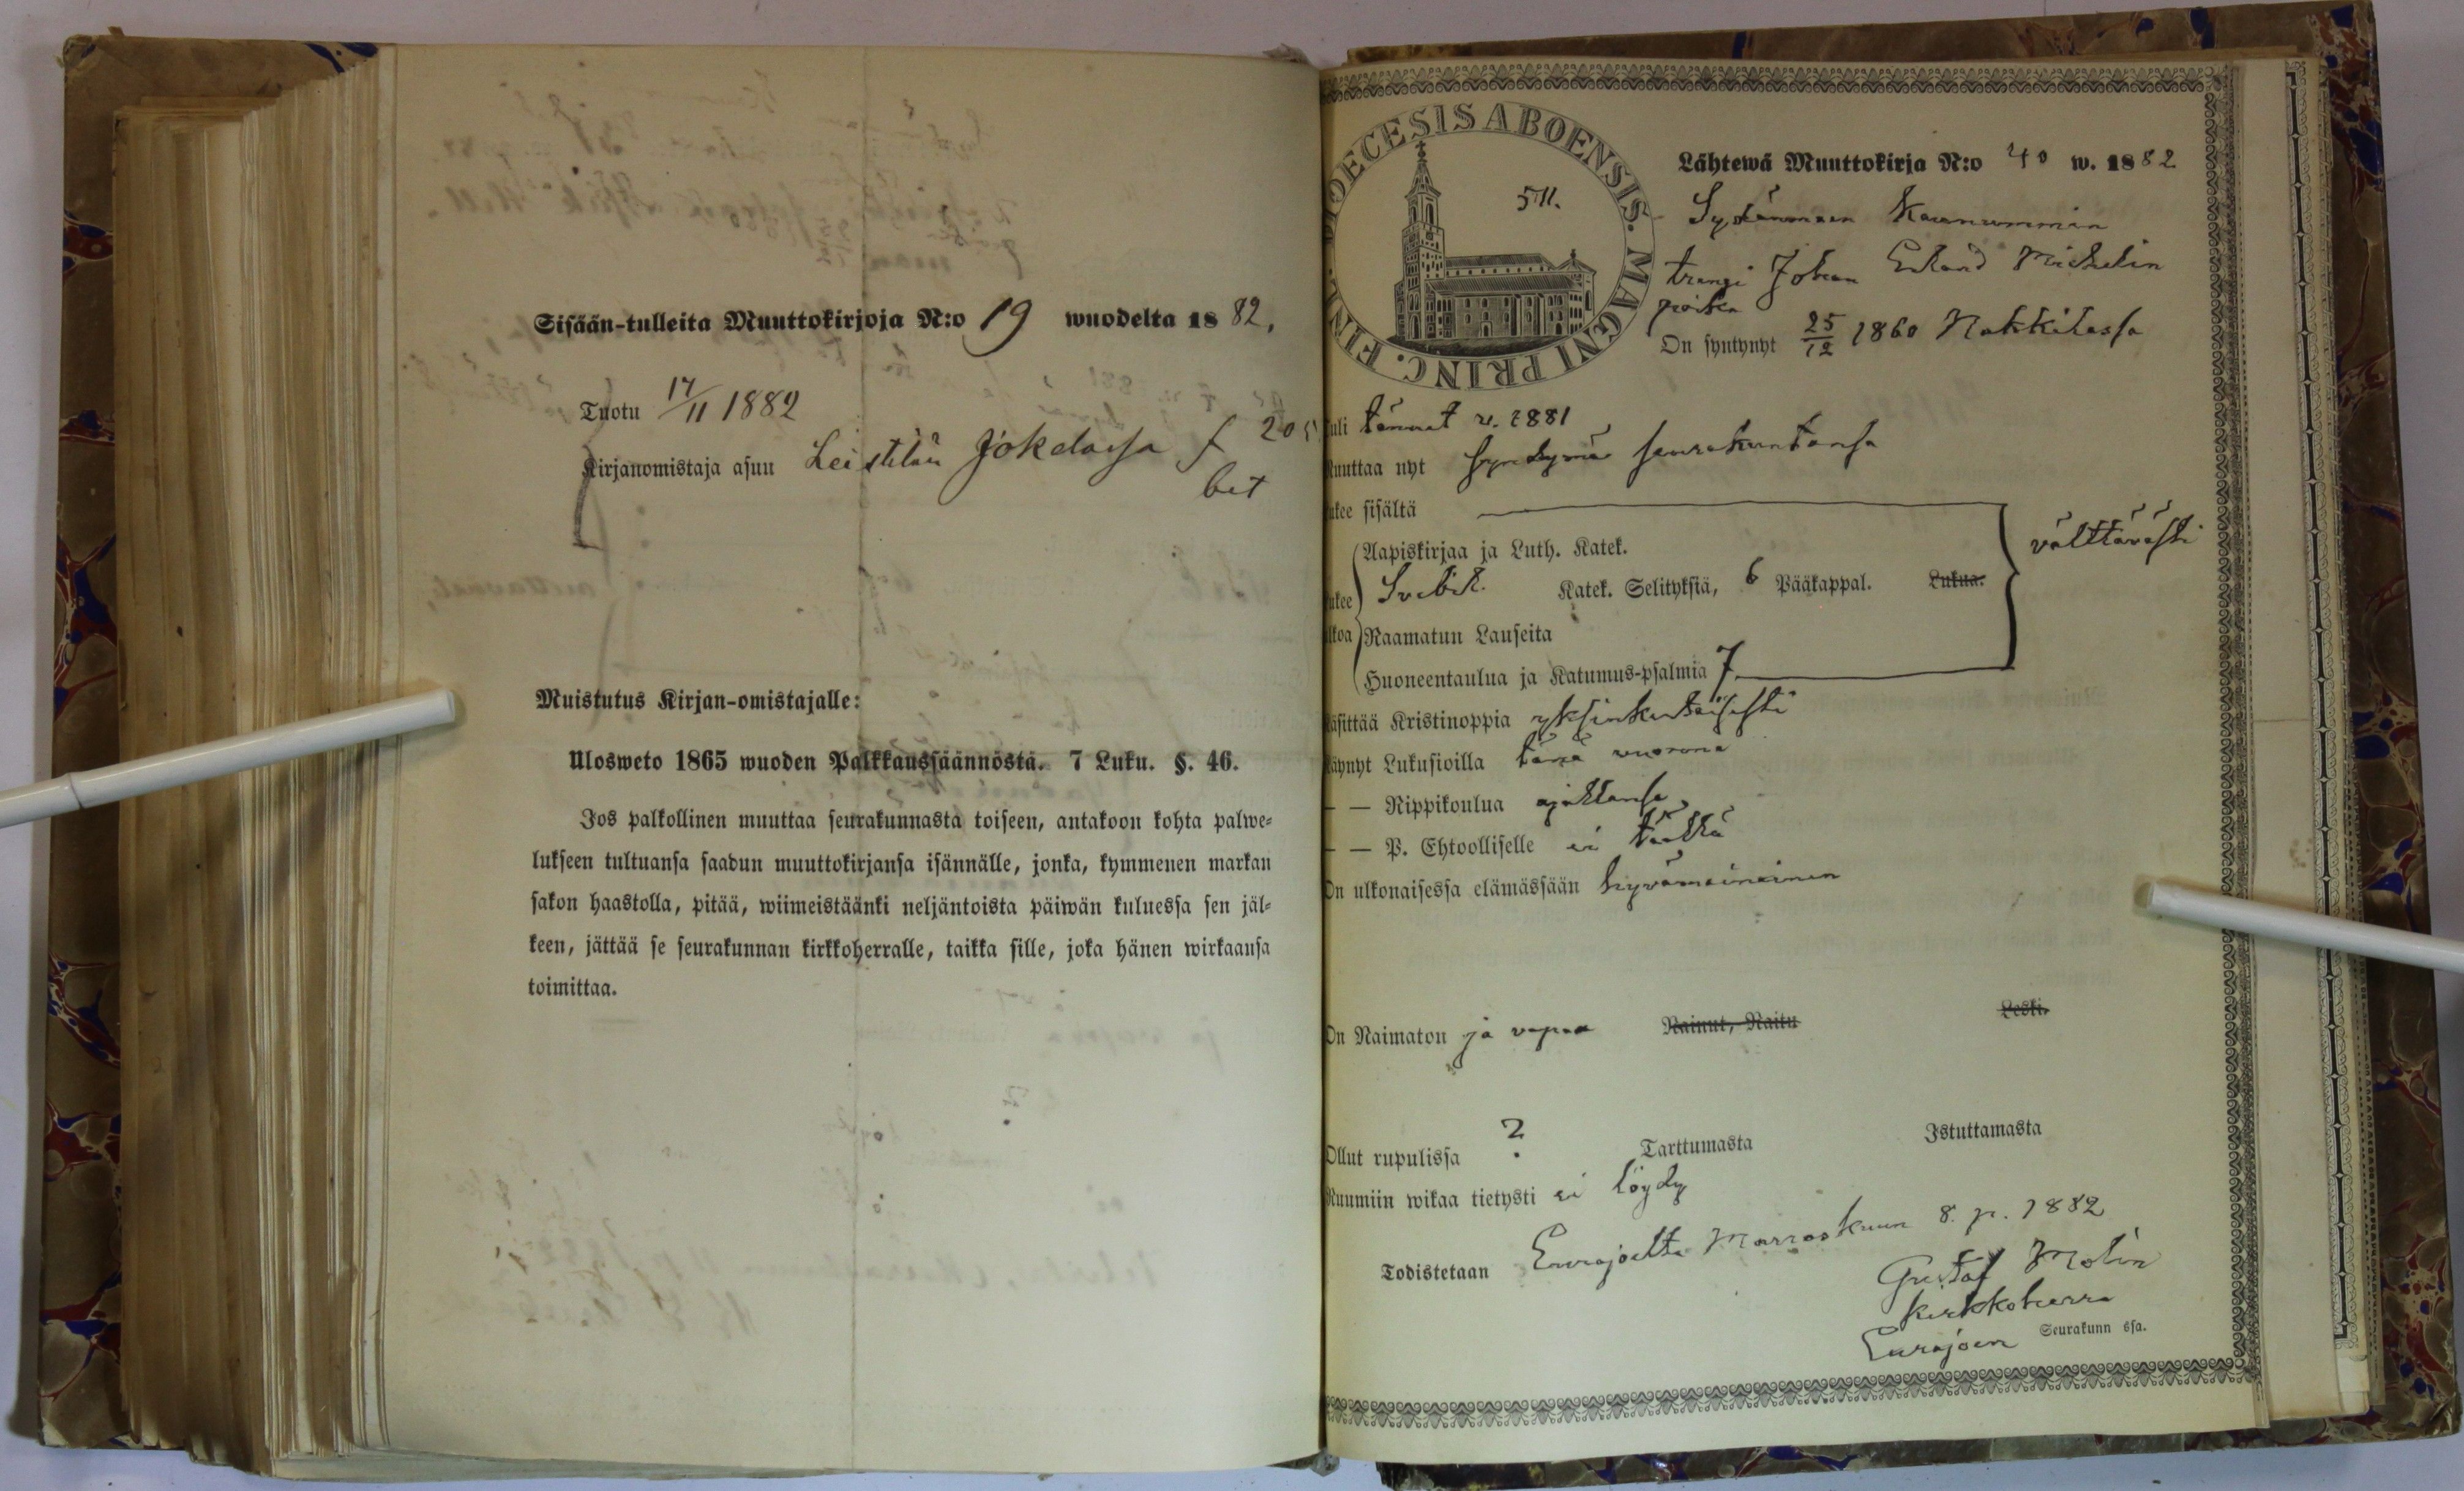 Sisään-tulleita Muuttokirjoja N:o 19 wuodelta 1882.
Tuotu 17/11 1882
Kirjanomistaja asuu Leistilän Jokelassa f 205
bet
Muistutus Kirjan-omistajalle:
Ulosweto 1865 wuoden Palkkaussäännöstä. 7 Luku. §. 46.
Jos palkollinen muuttaa seurakunnasta toiseen, antakoon kohta palwe=
lukseen tultuansa saadun muuttokirjansa isännälle, jonka, kymmenen markan
sakon haastolla, pitää, wiimeistäänki neljäntoista päiwän kuluessa sen jäl=
keen, jättää se seurakunnan kirkkoherralle, taikka sille, joka hänen wirkaansa
toimittaa.
DIOECESIS ABOENSIS. MAGNI PRINC. FINL.
511.
Lähtewä Muuttokirja N:o 40 w. 1882
Sydänmaan
trengi Johan Erland Michelin
poika
On syntynyt 25/12 1860 Nakkilassa
uli tännet v. 1881
uuttaa nyt syndymä seurakuntansa
ukee sisältä
välttävästi
Aapiskirjaa ja Luth. Katek.
ukee Svebil. Katek. Selityksiä, 6 Pääkappal. Lukua.
lkoa Raamatun Lauseita
Huoneentaulua ja Katumus-psalmia 7
äsittää Kristinoppia yksinkertaisesti
äynyt Lukusioilla tänä vuonna
— — Rippikoulua ajallansa
— — P. Ehtoolliselle ei täällä
On ulkonaisessa elämässään hyvämaineinen
On Naimaton ja vapaa Nainut, Naitu Leski.
Ollut rupulissa ? Tarttumasta Istuttamasta
Ruumiin wikaa tietysti ei löydy
Todistetaan Eurajoelta Marraskuun 8. p. 1882
Gustaf Molin
kirkkoherra
Eurajoen Seurakunn ssa.